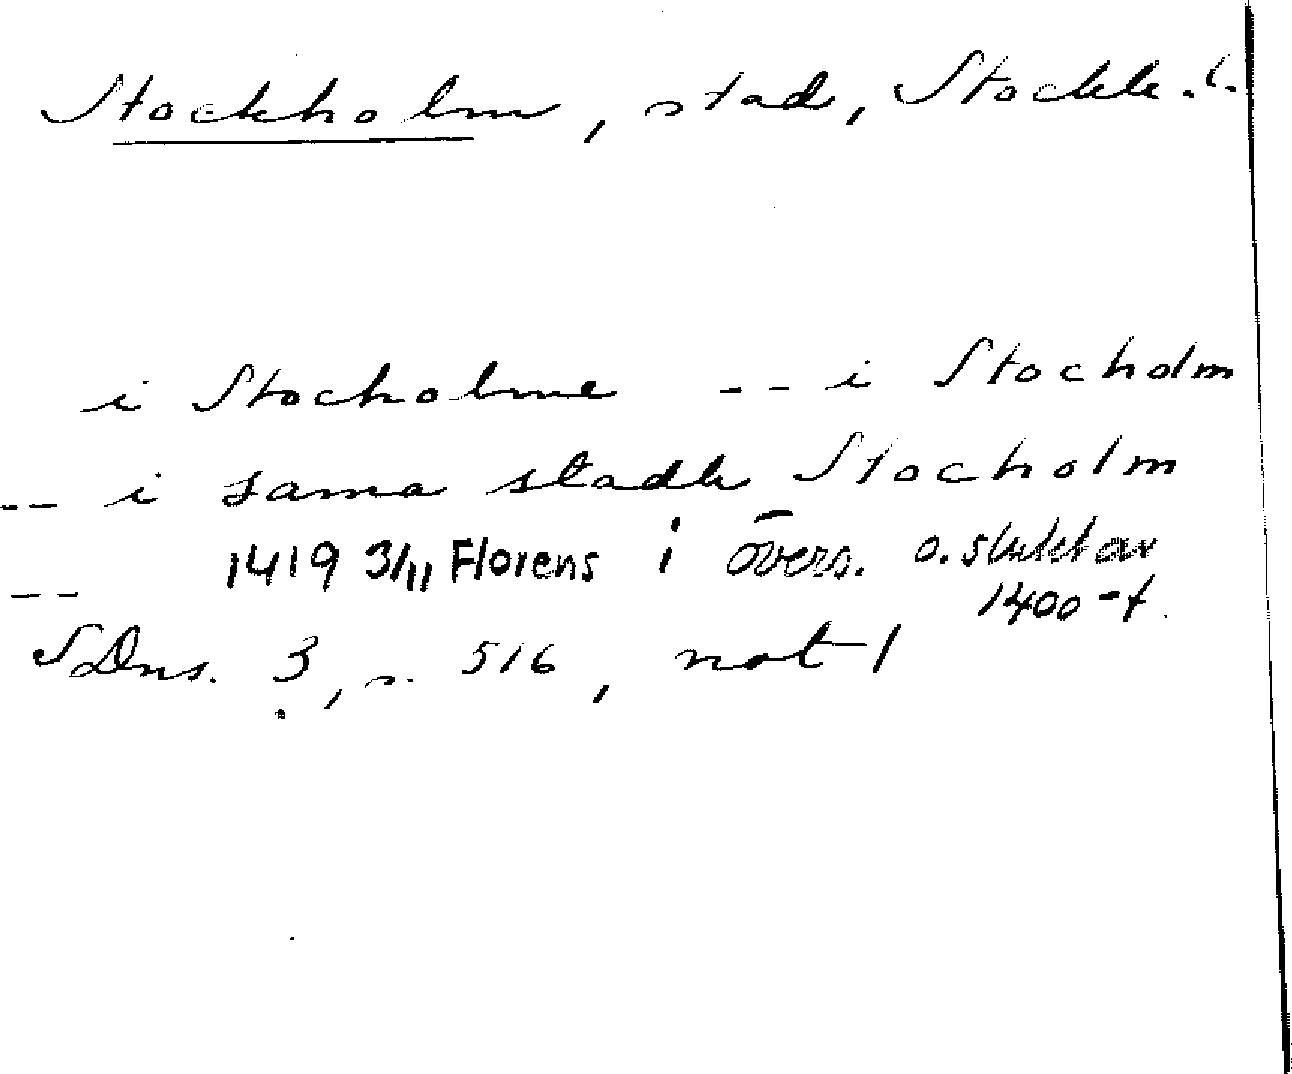 Stockholm, stad, Stockh. l.
i Stocholme -- i Stocholm
-- i sama stadh Stocholm
-- 1419 3/11 Florens i övers. o. slutet av
1400-t.
SDns. 3, s. 516, not 1